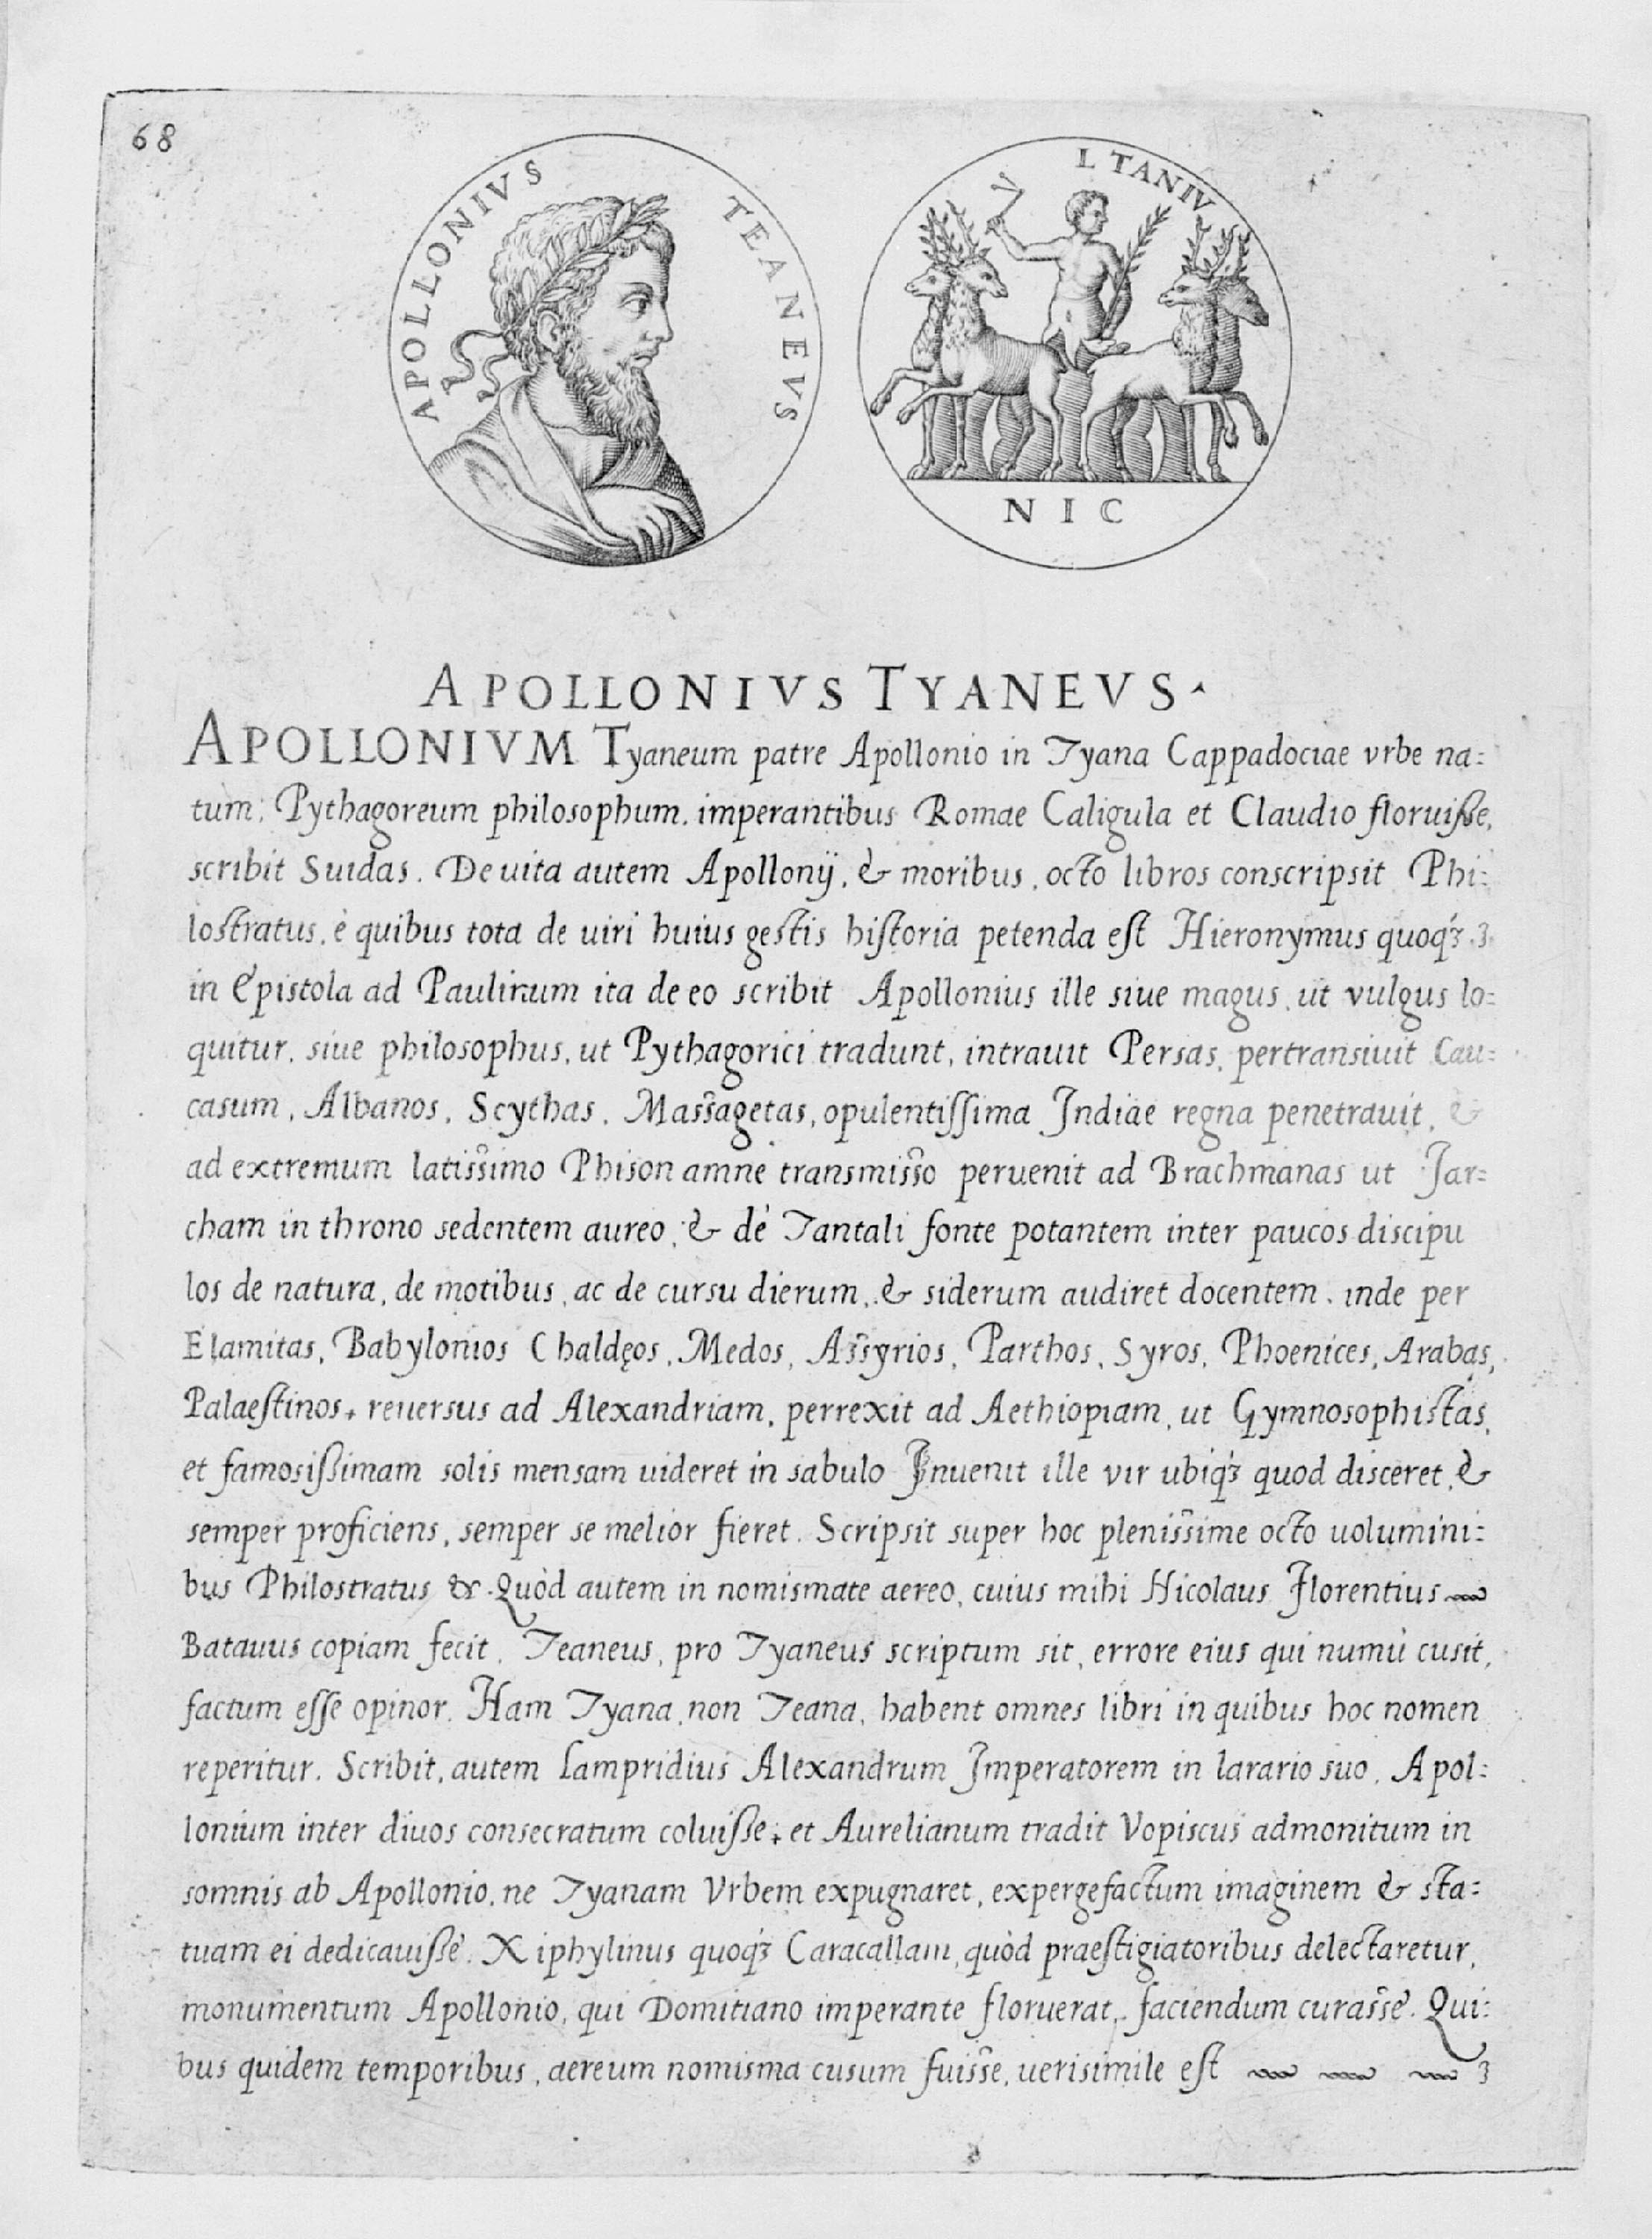 68
APOLLONIVS TEANEVS
L TANIV
NIC
APOLLONIVS TYANEVS
APOLLONIVM Tyaneum patre Apollonio in Tyana Cappadociae vrbe na:
tum, Pythagoreum philosophum, imperantibus Romae Caligula et Claudio floruisse,
scribit Suidas. De uita autem Apollonij, & moribus, octo libros conscripsit Phi:
lostratus, è quibus tota de uiri huius gestis historia petenda est Hieronymus quoqꝫ
in Epistola ad Paulinum ita de eo scribit Apollonius ille siue magus, ut vulgus lo:
quitur, siue philosophus, ut Pythagorici tradunt, intrauit Persas, pertransiuit Cau:
casum, Albanos, Scythas, Massagetas, opulentissima Indiae regna penetrauit, &
ad extremum latissimo Phison amne transmisso peruenit ad Brachmanas ut Jar:
cham in throno sedentem aureo, & de Tantali fonte potantem inter paucos discipu
los de natura, de motibus, ac de cursu dierum, & siderum audiret docentem. inde per
Elamitas, Babylonios Chaldęos, Medos, Assyrios, Parthos, Syros, Phoenices, Arabas,
Palaestinos, reuersus ad Alexandriam, perrexit ad Aethiopiam, ut Gymnosophistas,
et famosissimam solis mensam uideret in sabulo Inuenit ille vir ubiqꝫ quod disceret, &
semper proficiens, semper se melior fieret. Scripsit super hoc plenissime octo uolumini:
bus Philostratus &c. Quòd autem in nomismate aereo, cuius mihi Nicolaus Florentius
Batauus copiam fecit, Teaneus, pro Tyaneus scriptum sit, errore eius qui numū cusit,
factum esse opinor. Nam Tyana, non Teana, habent omnes libri in quibus hoc nomen
reperitur. Scribit, autem Lampridius Alexandrum Imperatorem in larario suo, Apol:
lonium inter diuos consecratum coluisse, et Aurelianum tradit Vopiscus admonitum in
somnis ab Apollonio, ne Tyanam Vrbem expugnaret, expergefactum imaginem & sta:
tuam ei dedicauisse. Xiphylinus quoqꝫ Caracallam, quòd praestigiatoribus delectaretur,
monumentum Apollonio, qui Domitiano imperante floruerat, faciendum curasse. Qui:
bus quidem temporibus, aereum nomisma cusum fuisse, uerisimile est